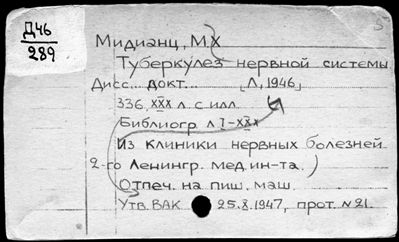 Д46
289
Мидианц, М.Х
Туберкулез нервной системы
Дисс... докт... [Л, 1946]
336, XXX л. с илл.
Библиогр. л I-XXX
Из клиники нервных болезней
2-го Ленингр. мед. ин-та.)
Отпеч. на пиш. маш.
Утв. ВАК 25.8.1947, прот. №21.